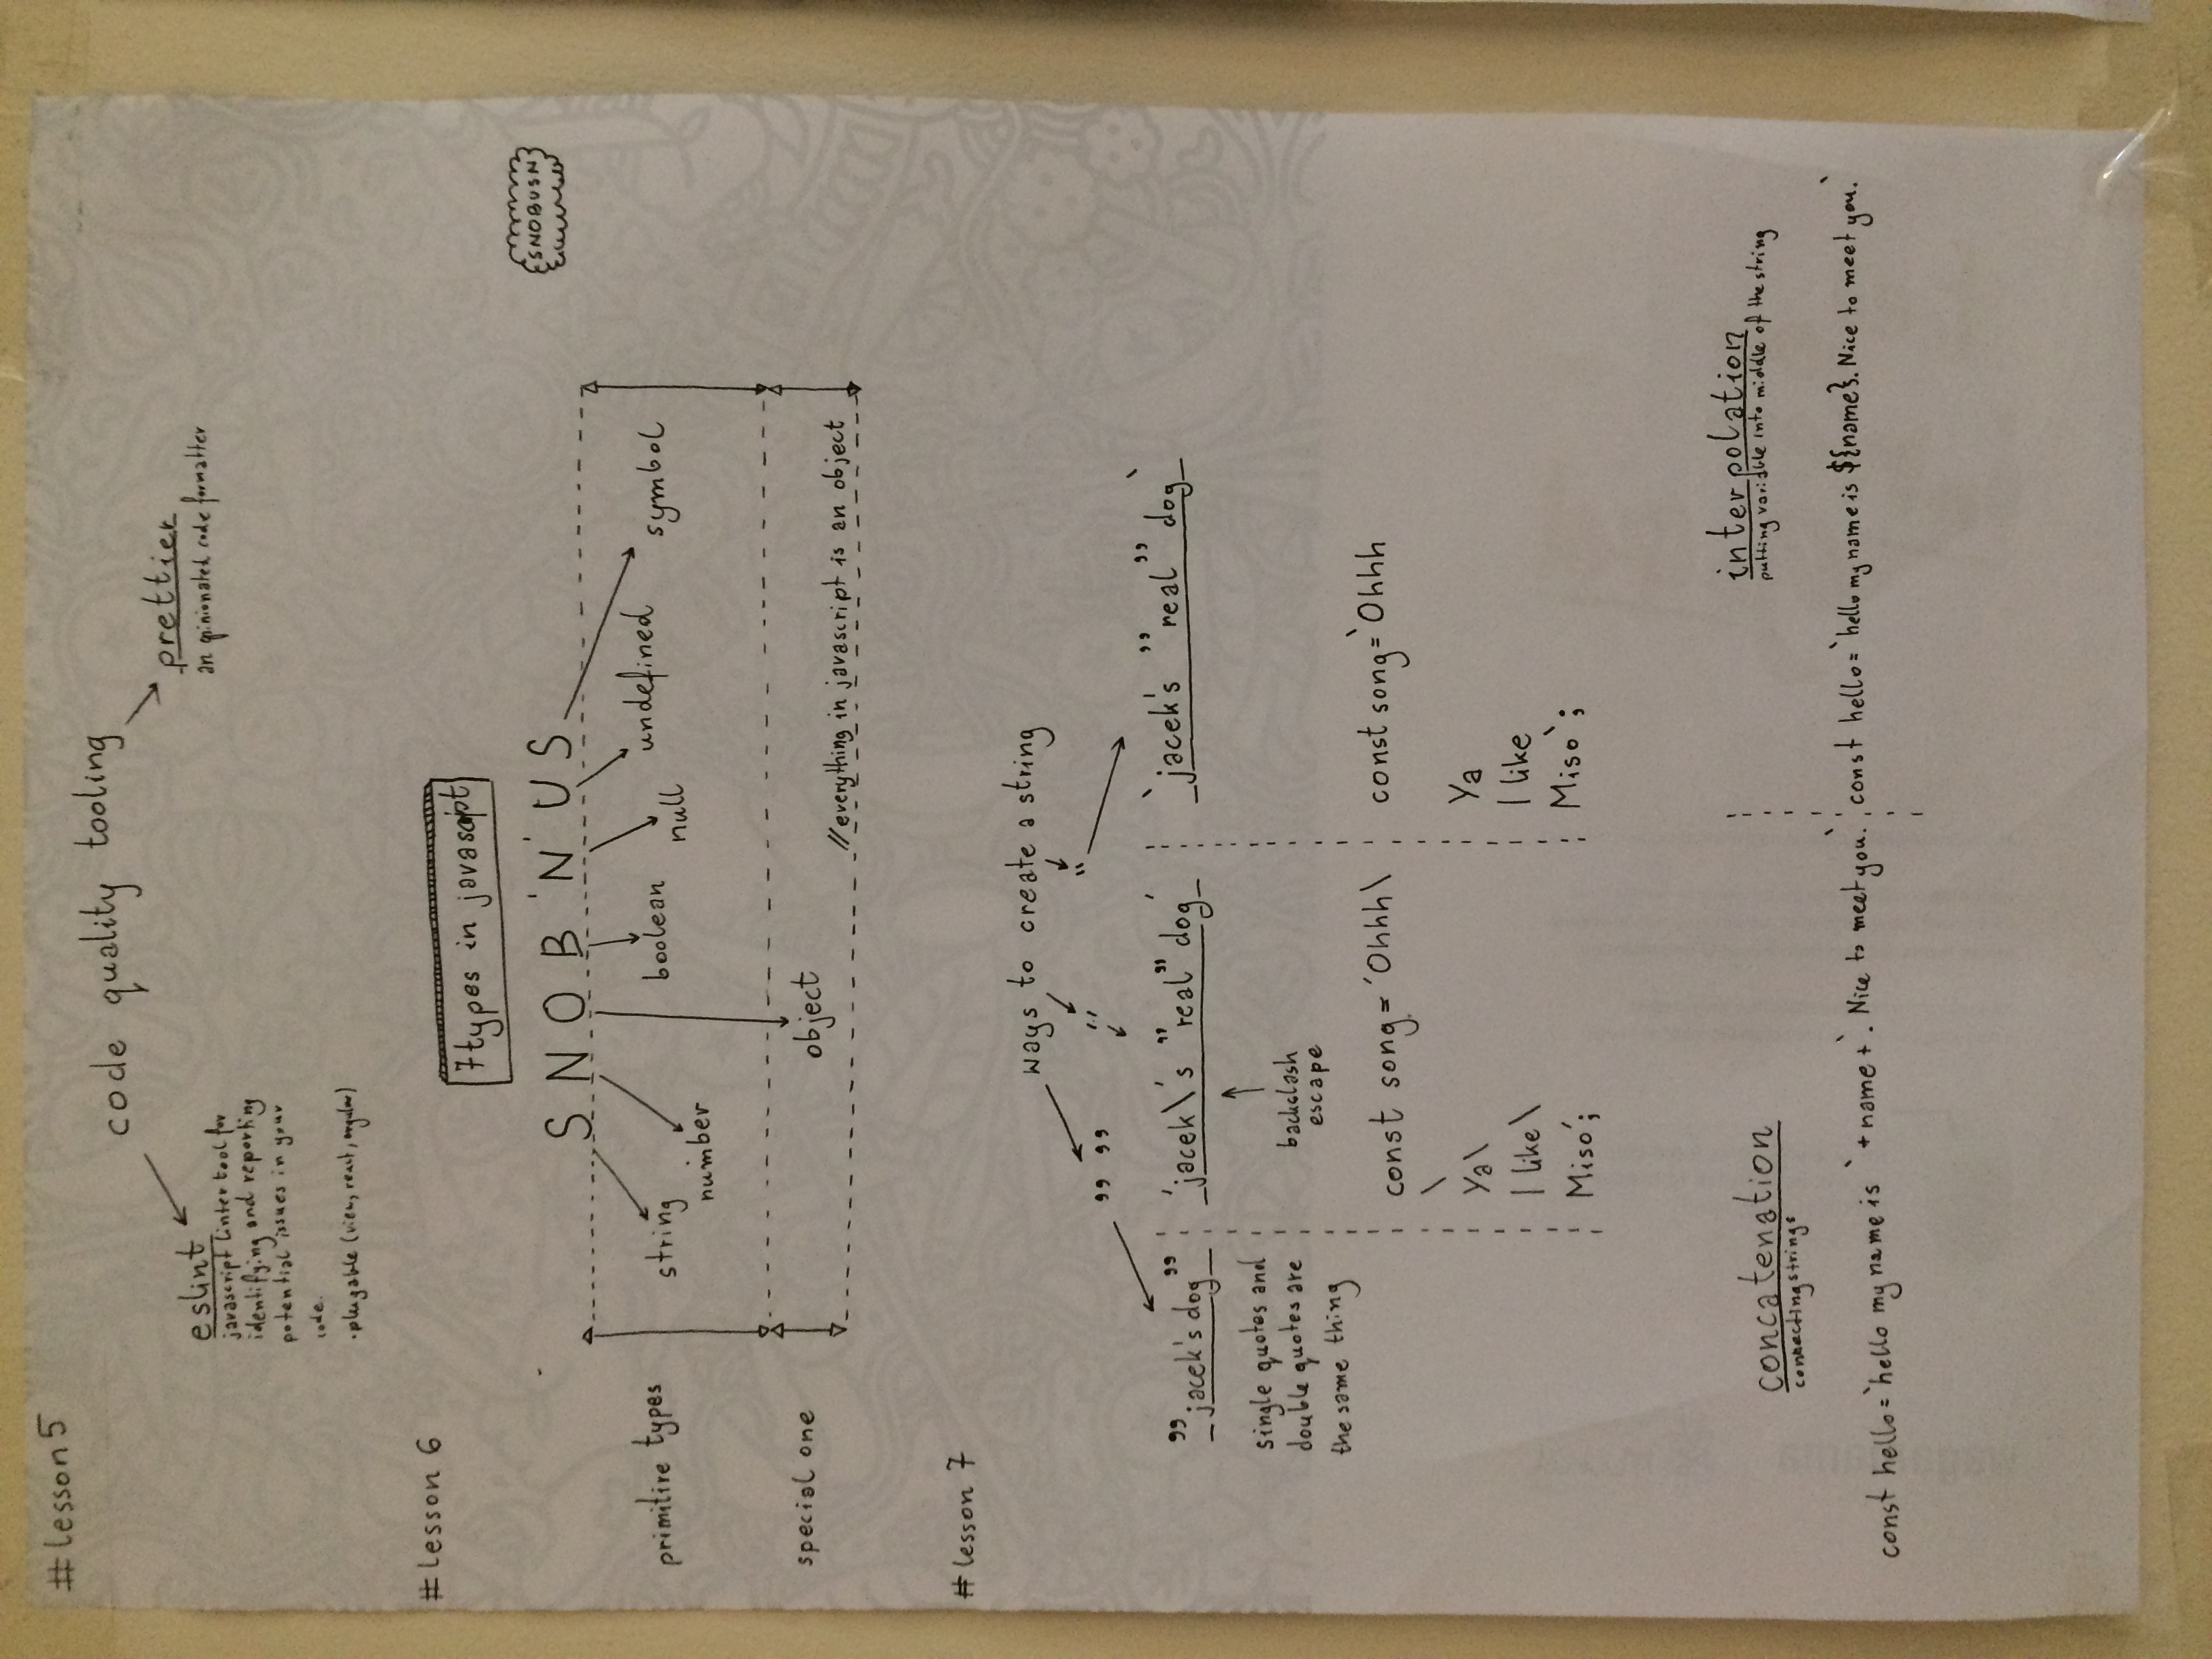 # lesson 5
code quality tooling
eslint
javascript linter tool for
identifying and reporting
potential issues in your
code.
• plugable (view, react, angular)
prettier
an opinionated code formatter
# lesson 6
7 types in javascript
SNOB'N'US
SNOBUSN
primitire types
string
number
boolean
null
undefined
symbol
special one
object
// everything in javascript is an object
# lesson 7
ways to create a string
„ „
''
``
”jacek's dog”
single quotes and
double quotes are
the same thing
'jacek\'s "real" dog'
backclash
escape
const song = 'Ohhh\
\
Ya\
I like\
Miso';
`jacek's ”real” dog`
const song = `Ohhh
Ya
I like
Miso`;
concatenation
connecting strings
const hello = `hello my name is ` + name + `. Nice to meet you.`
interpolation
putting variable into middle of the string
const hello = `hello my name is ${name}. Nice to meet you.`